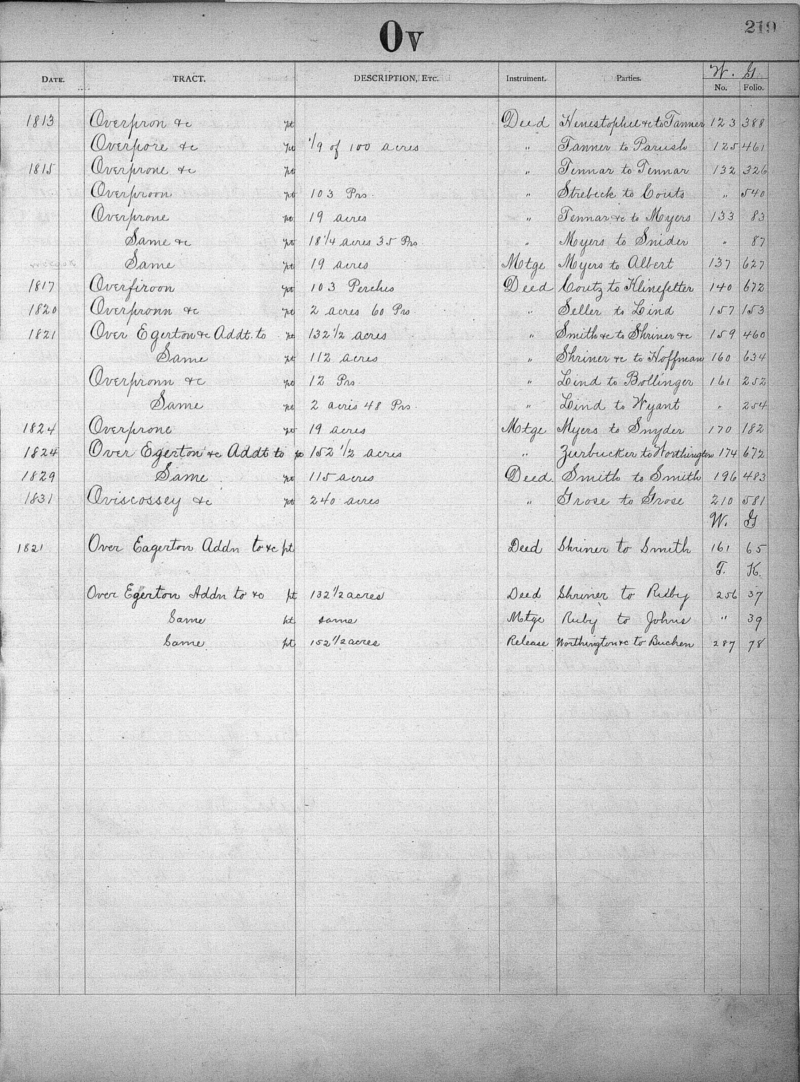 Ov 219
W. G.
DATE. TRACT. DESCRIPTION, ETC. Instrument. Parties. No. Folio.
1813 Overpron &c pt Deed &c to Tanner 123 388
Overpore &c pt 1/9 of 100 acres " Tanner to Parish 125 461
1815 Overprone &c pt " Tennar to Tennar 132 326
Overproon pt 103 Prs. " Strebeck to Couts " 540
Overprone pt 19 acres " Tennar &c to Myers 133 83
Same &c pt 18 1/4 acres 35 Prs " Myers to Snider " 87
Same pt 19 acres Mtge Myers to Albert 137 627
1817 Overfiroon pt 103 Perches Deed Coutz to Klinefetter 140 672
1820 Overpronn &c pt 2 acres 60 Prs " Seller to Lind 157 153
1821 Over Egerton &c Addt. to pt 132 1/2 acres " Smith &c to Shriner &c 159 460
Same pt 112 acres " Shriner &c to Hoffman 160 634
Overpronn &c pt 12 Prs " Lind to Bollinger 161 252
Same pt 2 acres 48 Prs. " Lind to Wyant " 254
1824 Overprone pt 19 acres Mtge Myers to Snyder 170 182
1824 Over Egerton &c Addt to pt 152 1/2 acres " Zurbucker to Worthington 174 672
1829 Same pt 115 acres Deed Smith to Smith 196 483
1831 Oviscossey &c pt 240 acres " Grose to Grose 210 581
W. G
1821 Over Eagerton Addn to &c pt Deed Shriner to Smith 161 65
T. K.
Over Egerton Addn to &c pt 132 1/2 acres Deed Shriner to 256 37
Same pt same Mtge Ruby to Johns " 39
Same pt 152 1/2 acres Release Worthington &c to Buchen 287 78